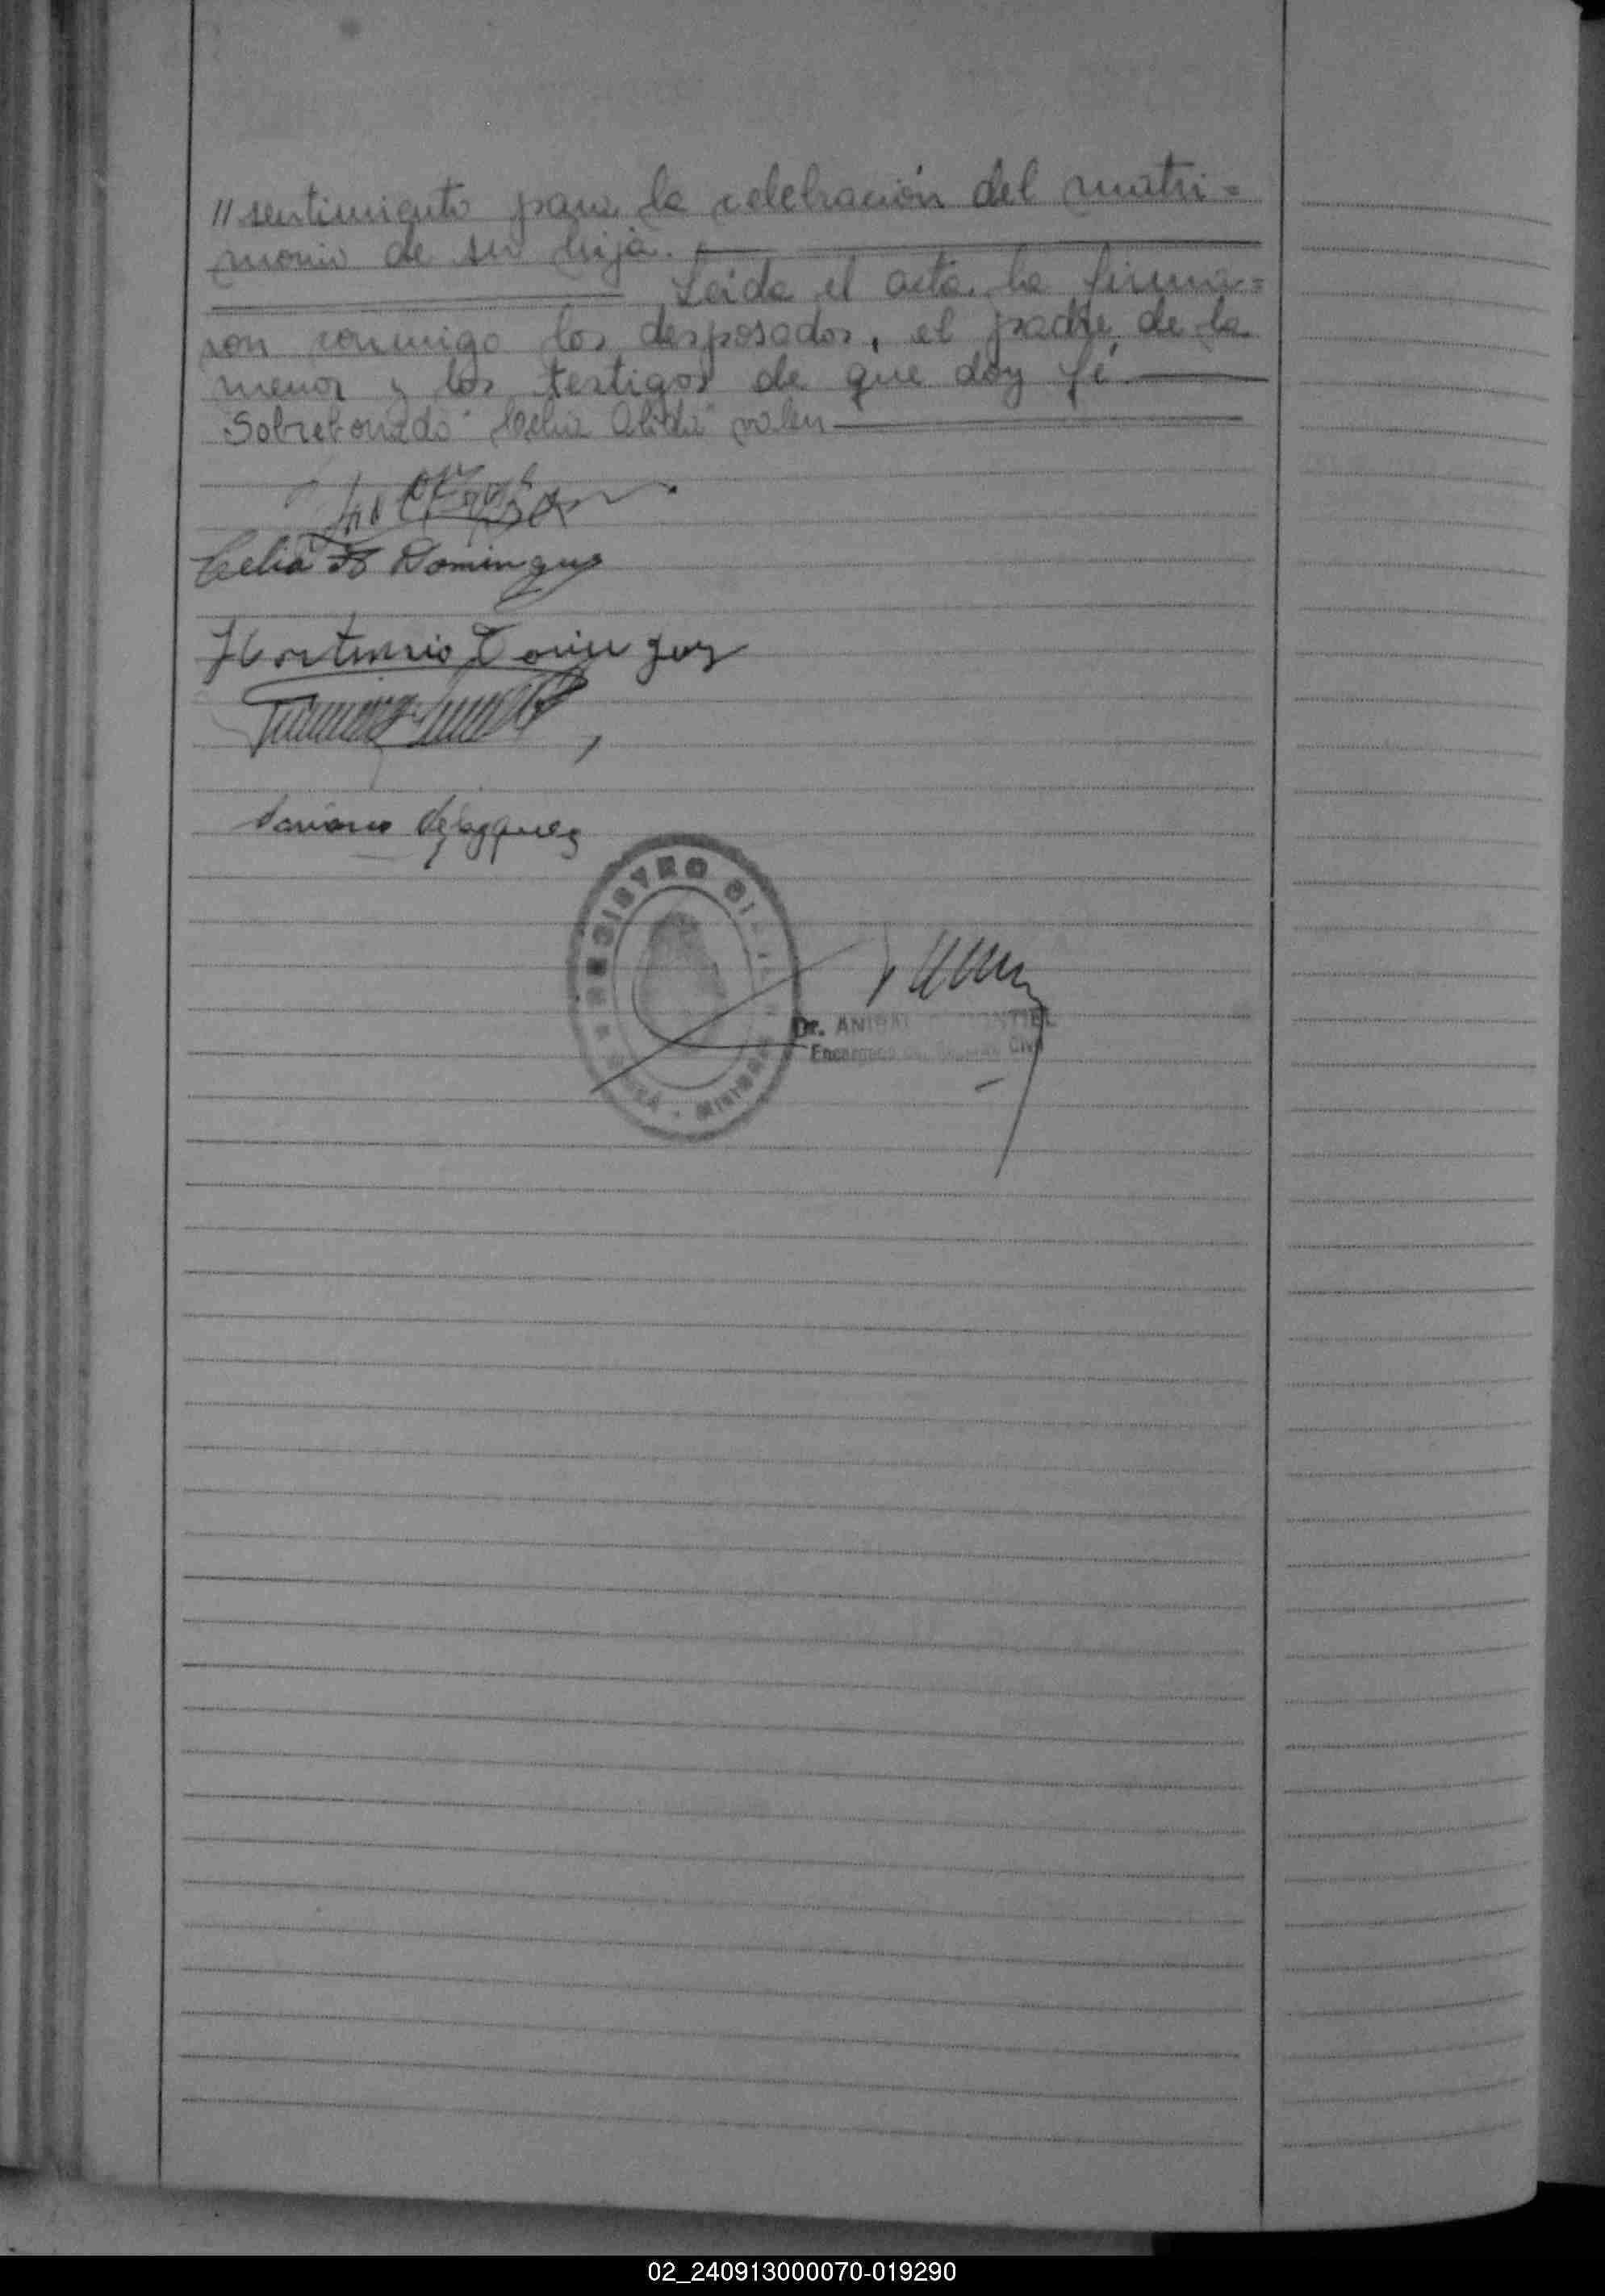 "sentimiento para la celebración del matri=
monio de su hija.
Leida el acta, la firma=
ron conmigo los desposados, el padre de la
menor y los testigos de que doy fé
Sobreborrado "Celia Alida" valen
Celia A Dominguez
Hortensio Dominguez
Velazquez
REGISTRO CIVIL
Dr. ANIBAL
Encargado del Registro Civil
02_240913000070-019290